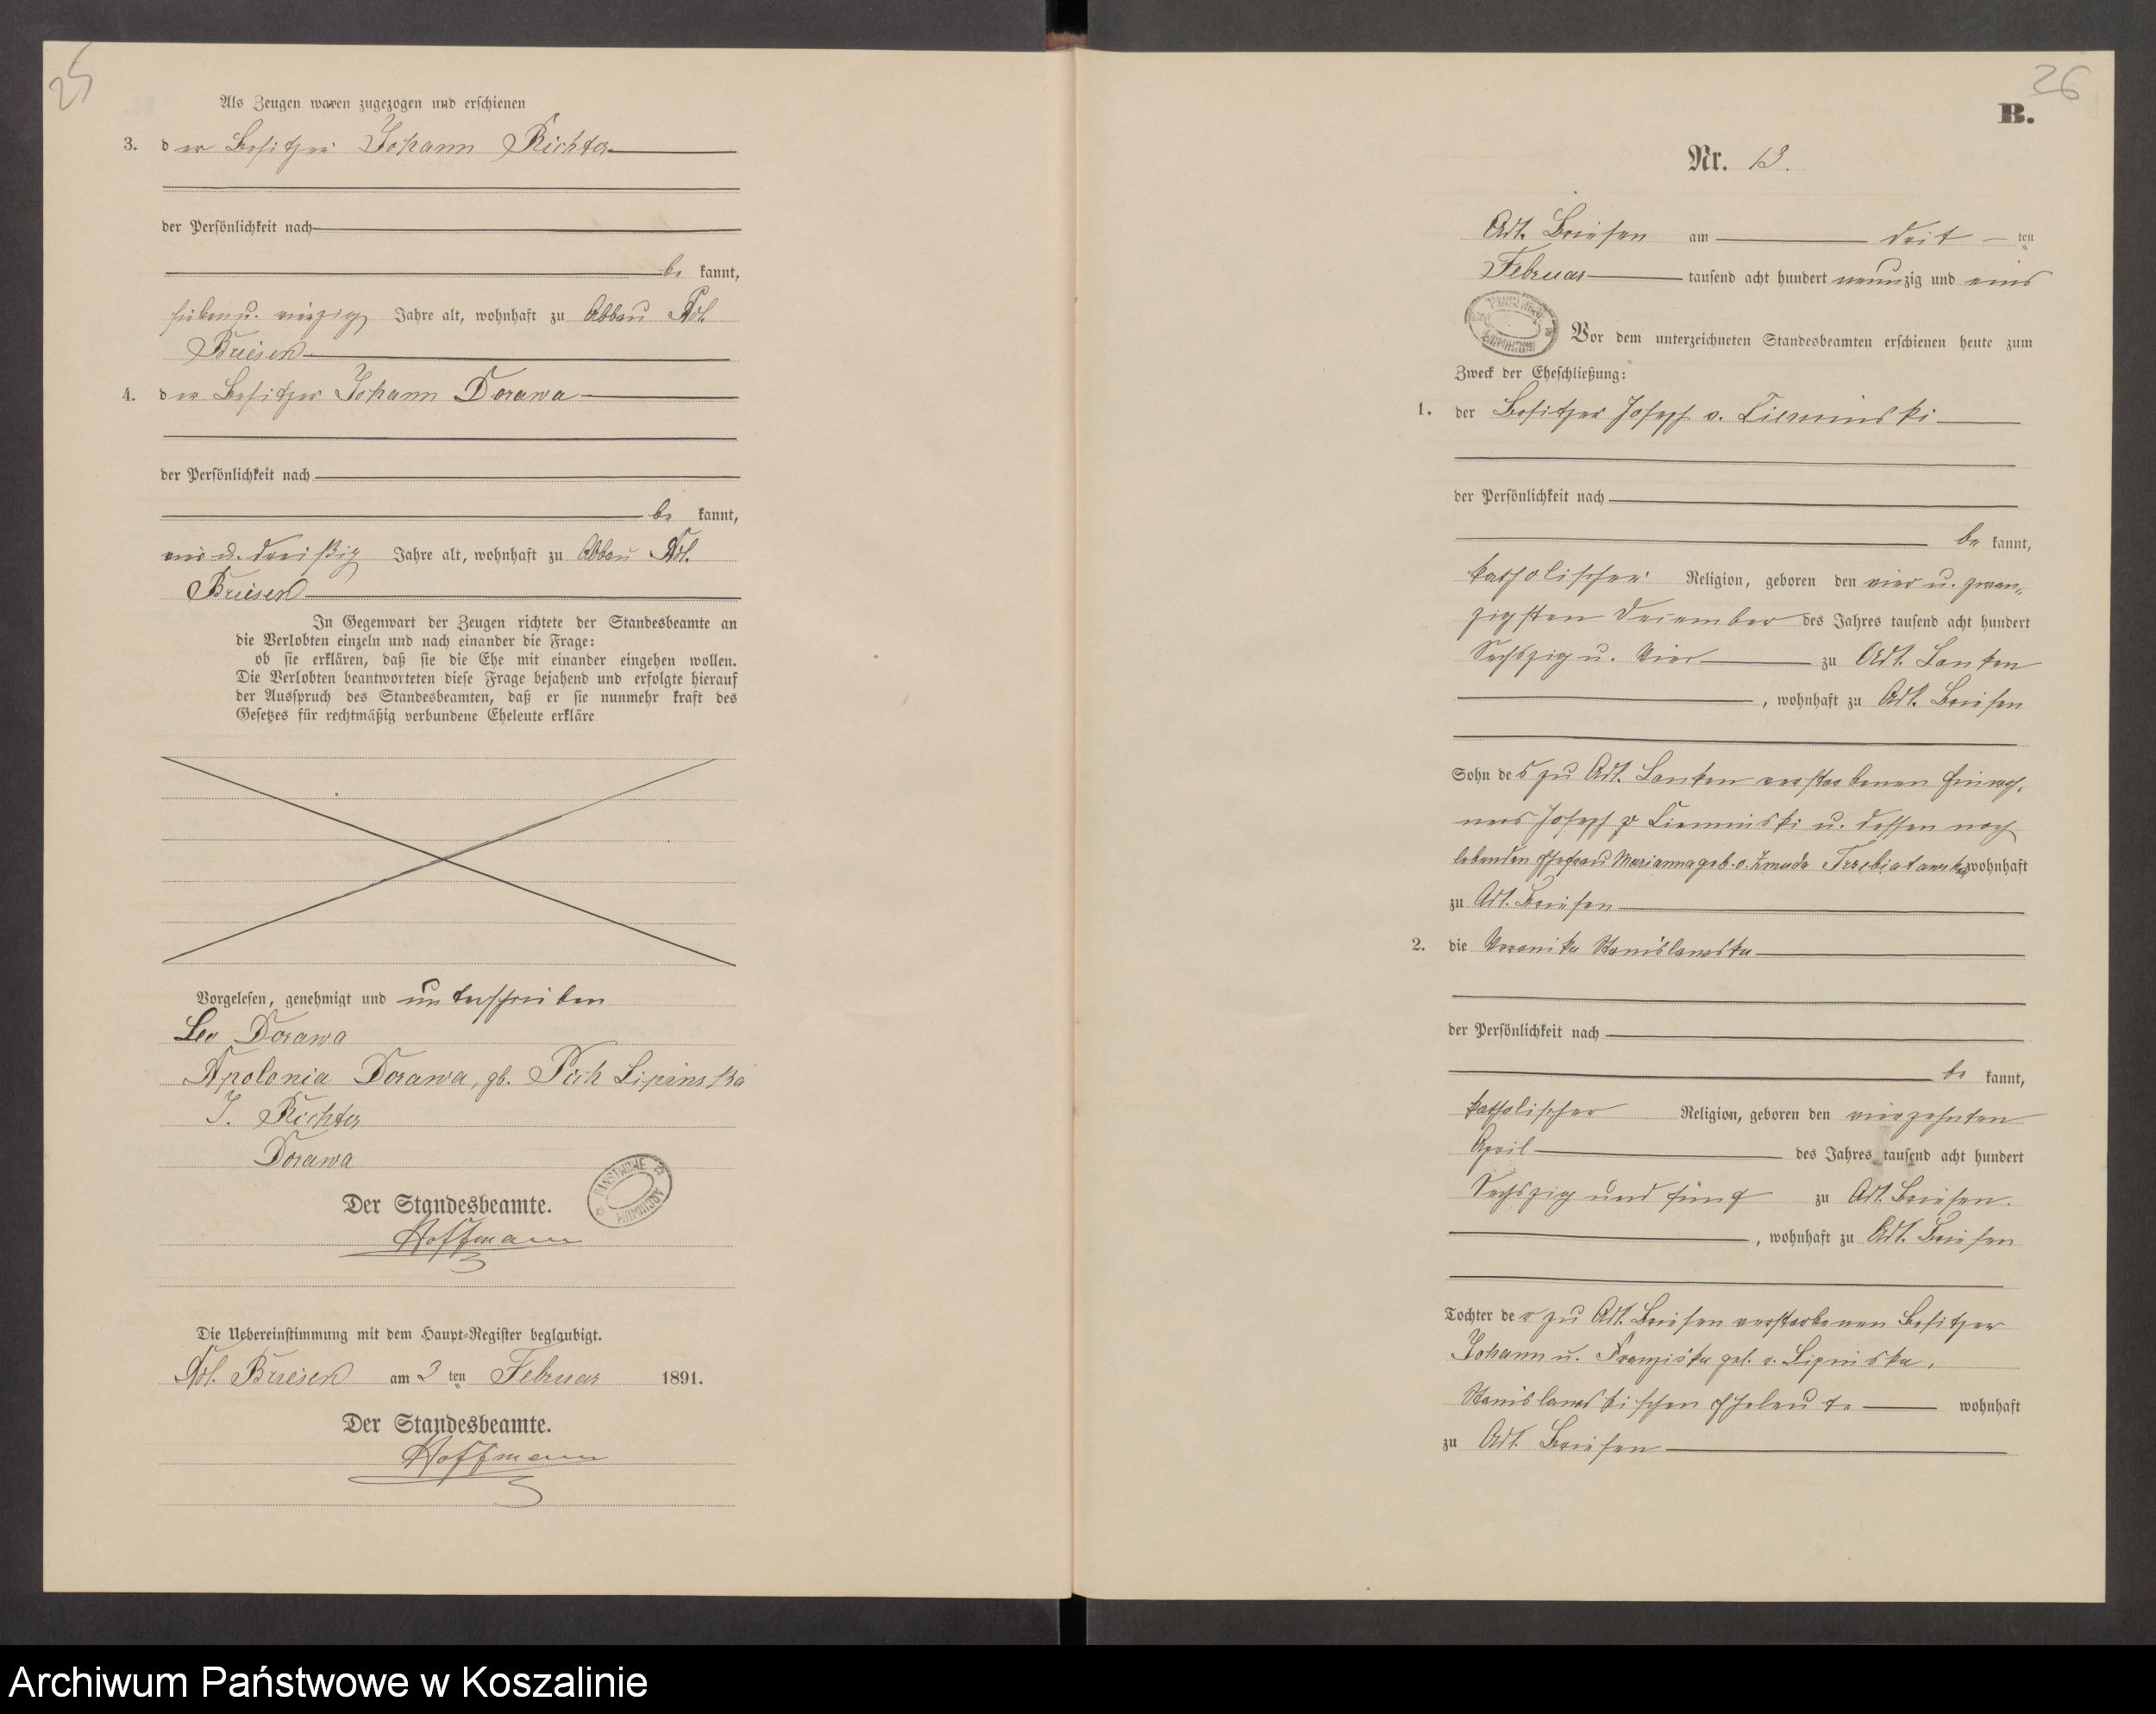 25
Als Zeugen waren zugezogen und erschienen
3. der Besitzer Johann Richter
der Persönlichkeit nach
be kannt,
sieben u. vierzig Jahre alt, wohnhaft zu Abbau Adl.
Briesen
4. der Besitzer Johann Dorawa
der Persönlichkeit nach
be kannt,
ein u. dreißig Jahre alt, wohnhaft zu Abbau Adl.
Briesen
In Gegenwart der Zeugen richtete der Standesbeamte an
die Verlobten einzeln und nach einander die Frage:
ob sie erklären, daß sie die Ehe mit einander eingehen wollen.
Die Verlobten beantworteten diese Frage bejahend und erfolgte hierauf
der Ausspruch des Standesbeamten, daß er sie nunmehr kraft des
Gesetzes für rechtmäßig verbundene Eheleute erkläre
Vorgelesen, genehmigt und unterschrieben
Leo Dorawa
Apolonia Dorawa, gb. Pich Lipinska
J. Richter
Dorawa
Der Standesbeamte.
Hoffmann
Die Uebereinstimmung mit dem Haupt-Register beglaubigt.
Adl. Briesen am 3 ten Februar 1891.
Der Standesbeamte.
Hoffmann
26
B.
Nr. 13.
Adl. Briesen am drit ten
Februar tausend acht hundert neunzig und eins
Vor dem unterzeichneten Standesbeamten erschienen heute zum
Zweck der Eheschließung:
1. der Besitzer Joseph v. Cieminski
der Persönlichkeit nach
be kannt,
katholischer Religion, geboren den vier u. zwan-
zigsten Dezember des Jahres tausend acht hundert
Sechszig u. Vier zu Adl. Lanken
, wohnhaft zu Adl. Briesen
Sohn des zu Adl. Lanken verstorbenen Einwoh-
ners Joseph v Cieminski u. dessen noch
lebenden Ehefrau Marianna geb. v. Zmuda Trzebiatowska wohnhaft
zu Adl. Briesen
2. die Veronika Stanislawska
der Persönlichkeit nach
be kannt,
katholischer Religion, geboren den vierzehnten
April des Jahres tausend acht hundert
Sechszig und fünf zu Adl. Briesen.
, wohnhaft zu Adl. Briesen
Tochter der zu Adl. Briesen verstorbenen Besitzer
Johann u. Franziska geb. v. Lipinska,
Stanislawskischen Eheleute wohnhaft
zu Adl. Briesen
Archiwum Państwowe w Koszalinie